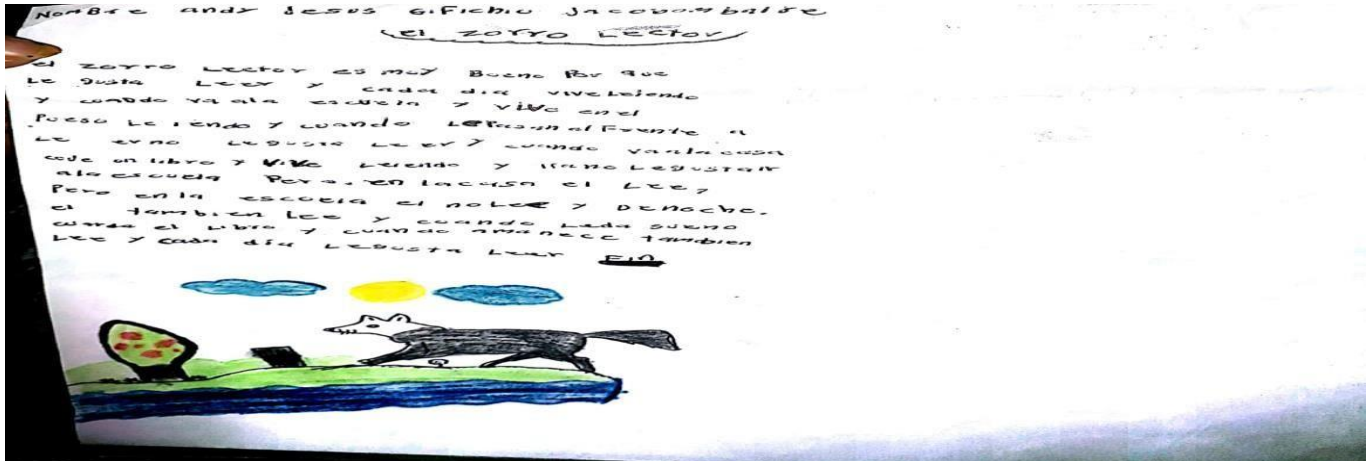 NomBre andy Jesus
el zorro Lector
el zorro Lector es muy Bueno Por que
Le gusta Leer y cada dia vive Leiendo
y cuando va ala escuela y vive en el
Le iendo y cuando al Frente a
Le er no Le gusta Leer y cuando va ala casa
coje un libro y vive Leiendo y no Le gusta ir
ala escuela Pero. en la casa el Lee,
Pero en la escuela el no Lee y De noche.
el tambien Lee y cuando Le da sueño
el Libro y cuando amanece tambien
Lee y cada dia Le gusta Leer Fin